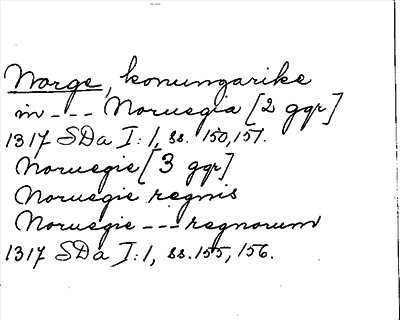 Norge, konungarike
in --- Noruegia [2 ggr]
1317 SDa I:1, ss. 150, 151.
Noruegie [3 ggr]
Noruegie regnis
Noruegie --- regnorum
1317 SDa I:1, ss. 155, 156.